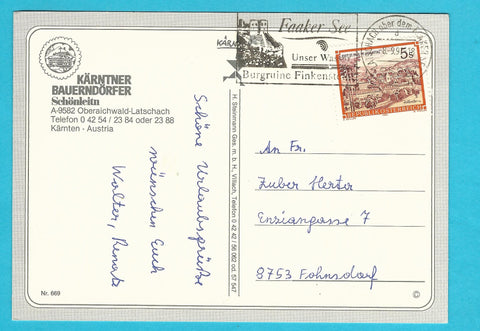 KÄRNTNER
BAUERNDÖRFER
Schönleitn
A-9582 Oberaichwald-Latschach
Telefon 0 42 54 / 23 84 oder 23 88
Kärnten - Austria
Schöne Urlaubsgrüße
wünschen Euch
Walter, Renate
Nr. 669
H. Steinmann Ges. m. b. H., Villach, Telefon 0 42 42 / 56 062 od. 57 547
Faaker See
Unser
Burgruine Finkenst
5 S
REPUBLIK ÖSTERREICH
An Fr.
Zuber Herta
Enziangasse 7
8753 Fohnsdorf
©